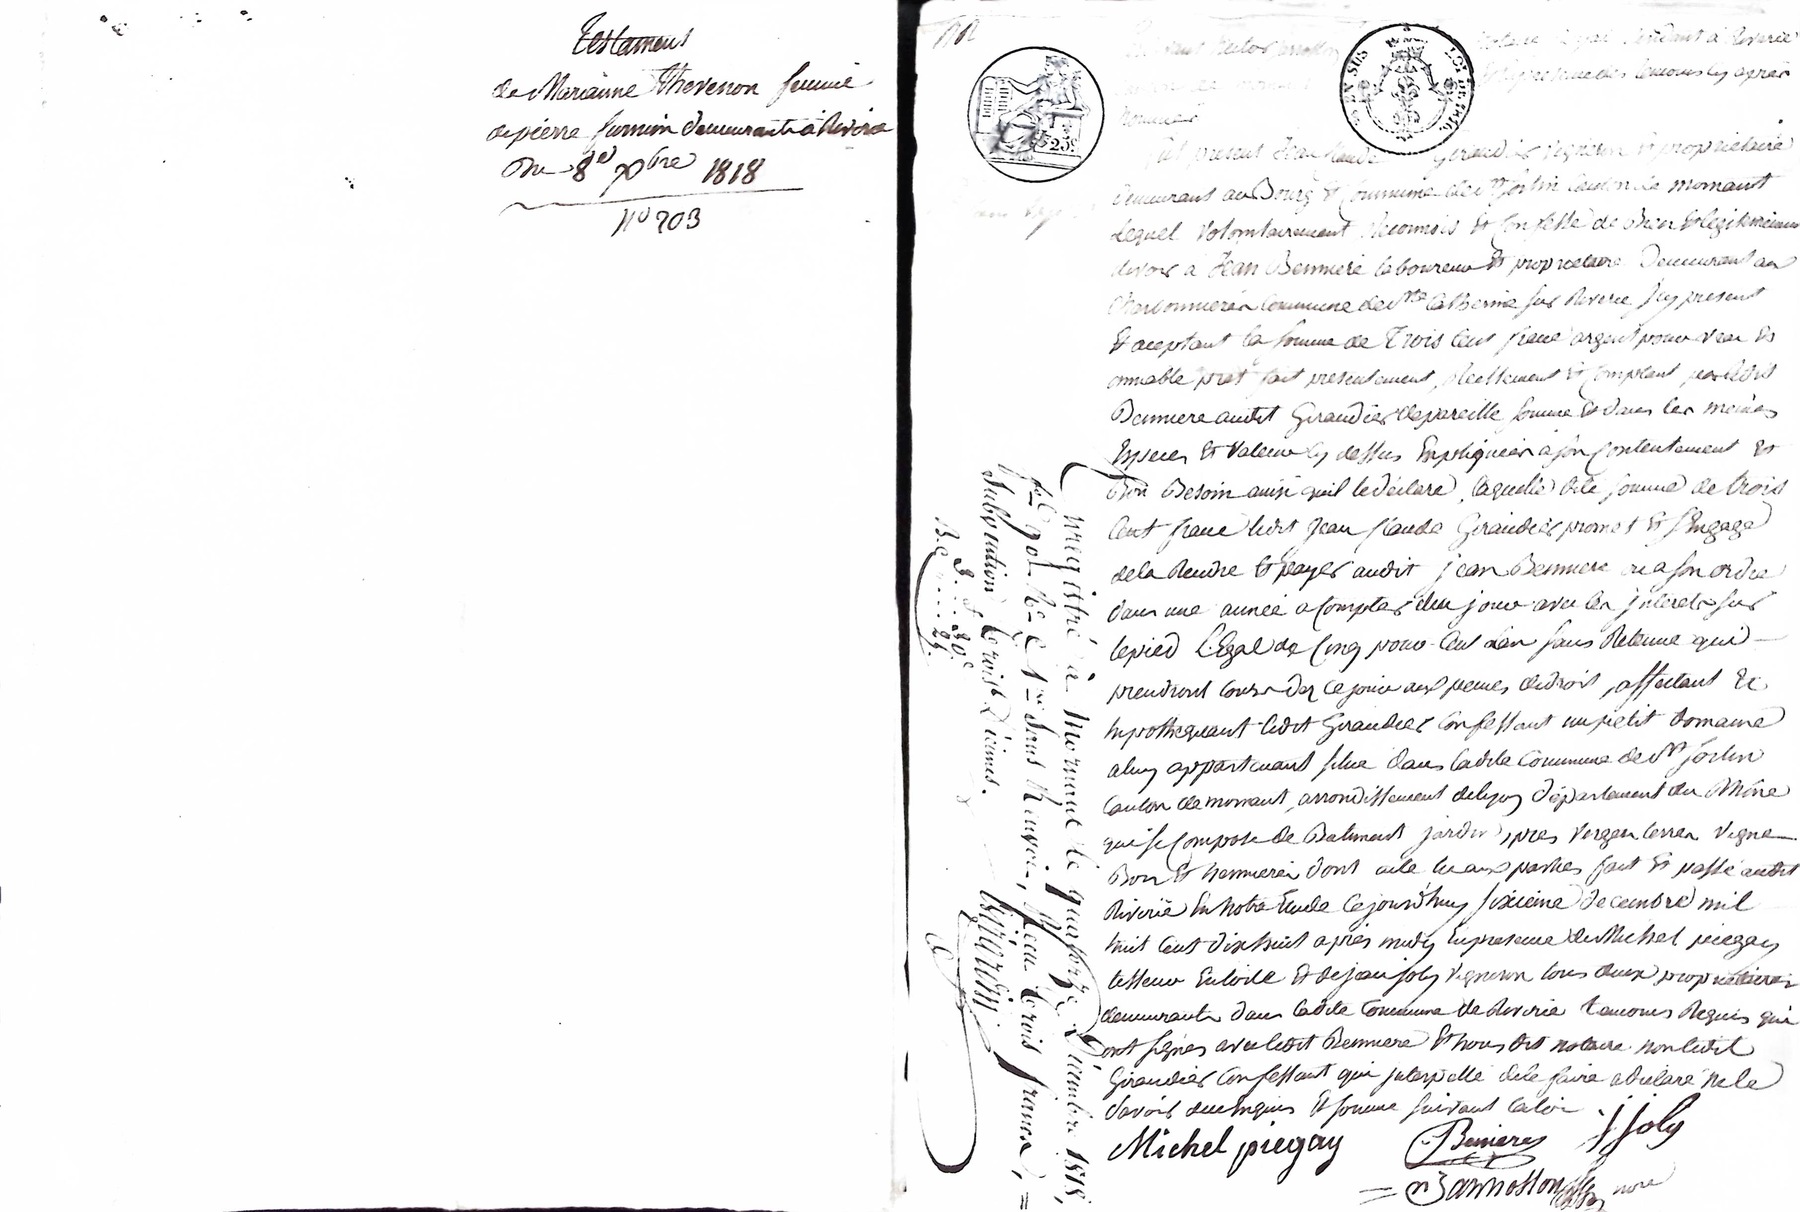 Testament
de Marianne Thevenon femme
de pierre furnion demeurante à Riverie
Du 8e xbre 1818
No 703
25c
fut present Jean Claude Giraudier vigneron et proprietaire
demeurant au Bourg et Commune de St Sorlin Canton de mornant
Lequel volontairement Reconnois et Confesse de Bien et legitimement
devoir à Jean Bennière laboureur et proprietaire Demeurant aux
Charbonnieres Commune de Ste Catherine sur Riverie Icy present
Et aceptant la somme de Trois Cent franc argent pour vrai et
amable pret fait presentement, réellement et Comptant par ledit
Benniere audit Giraudier de pareille somme Et dans les mêmes
Especes Et Valeur Cy dessus Expliquées à son Contentement Et
Bon Besoin ainsi qu'il le déclare, laquelle dite somme de trois
Cent franc ledit Jean Claude Giraudier promet Et s'Engage
de la Rendre Et payer audit jean Benniere ou a son ordre
dans une année a Compter de ce jour avec les jnterets sur
le pied L'Egal de Cinq pour Cent L'an sans Retenue qui
prendront Cours dez ce jour aux peines de droit, affectant Et
hypothequant ledit Giraudier Confessant un petit domaine
a luy appartenant situé dans ladite Commune de St Sorlin
Canton de mornant, arrondissement de lyon département du Rhône
qui se Compose de Batiment jardin, pres verger terres vigne
Bois Et hermieres dont acte aux parties fait Et passé audit
Riverie En notre Etude Ce jourd'huy sixième decembre mil
huit Cent dix huit après midy En presence de Michel piegay
tisseur En toile Et de jean joly vigneron tous deux proprietaires
demeurants dans ladite Commune de Riverie temoins Requis qui
ont signés avec ledit Benniere Et nous dit notaire non ledit
Giraudier Confessant qui jnterpellé de le faire a déclaré ne le
savoir de ce Enquis Et sommé suivant la loi
Michel piegay Bénieres j joly
Bannosson nore
Enregistré à Mornant le quatorze décembre 1818,
fo 90 Ro C 1re sans Renvoi, Reçu trois francs,
Subvention trente centimes.
3 f 30c